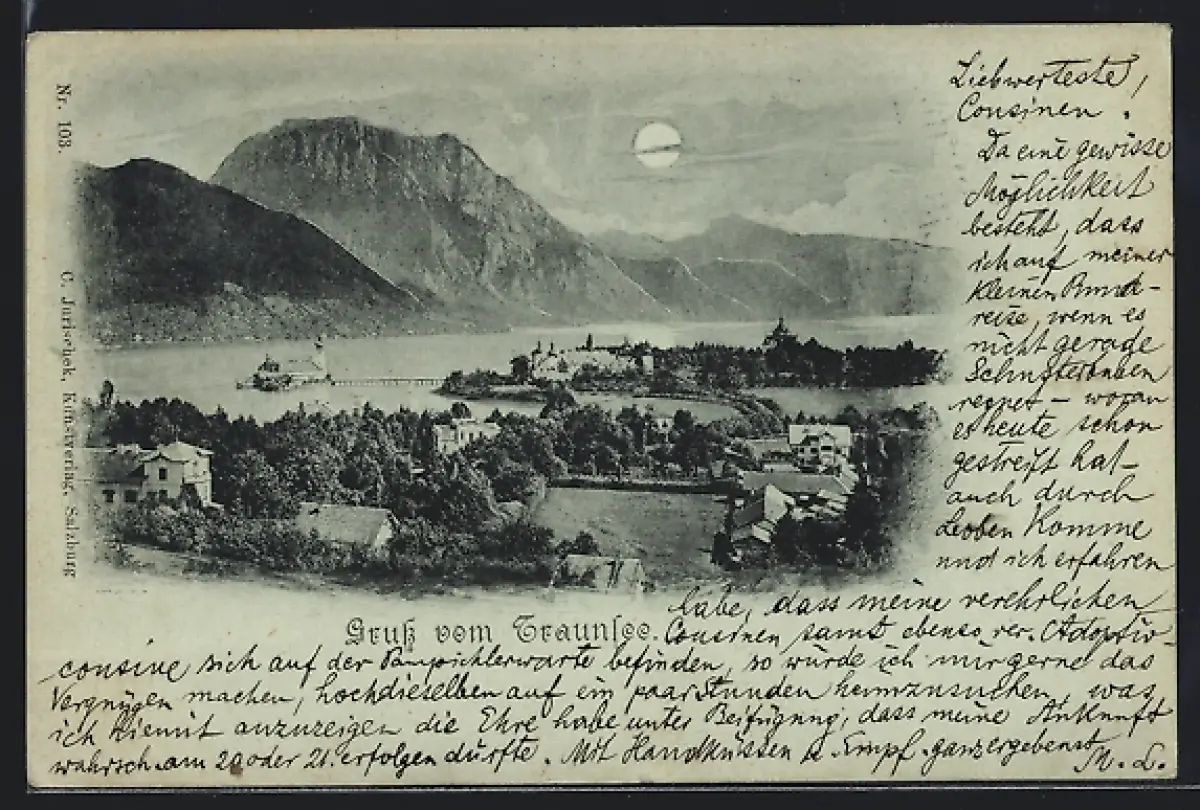 Nr. 103.
C. Jurischek, Kunstverlag, Salzburg
Gruß vom Traunsee.
Liebwerteste,
Cousinen.
Da eine gewisse
Möglichkeit
besteht, dass
ich auf meiner
kleinen Rund-
reise, wenn es
nicht gerade
Schusterbuben
regnet – woran
es heute schon
gestreift hat –
auch durch
Leoben komme
und ich erfahren
habe, dass meine verehrlichen
Cousinen samt ebenso ver. Adoptiv-
cousine sich auf der Pampichlerwarte befinden, so würde ich mir gerne das
Vergnügen machen, hochdieselben auf ein paar Stunden heimzusuchen, was
ich hiemit anzuzeigen die Ehre habe unter Beifügung, dass meine Ankunft
wahrsch. am 20 oder 21. erfolgen dürfte. Mit Handküssen u. Empf. ganz ergebenst
M. L.